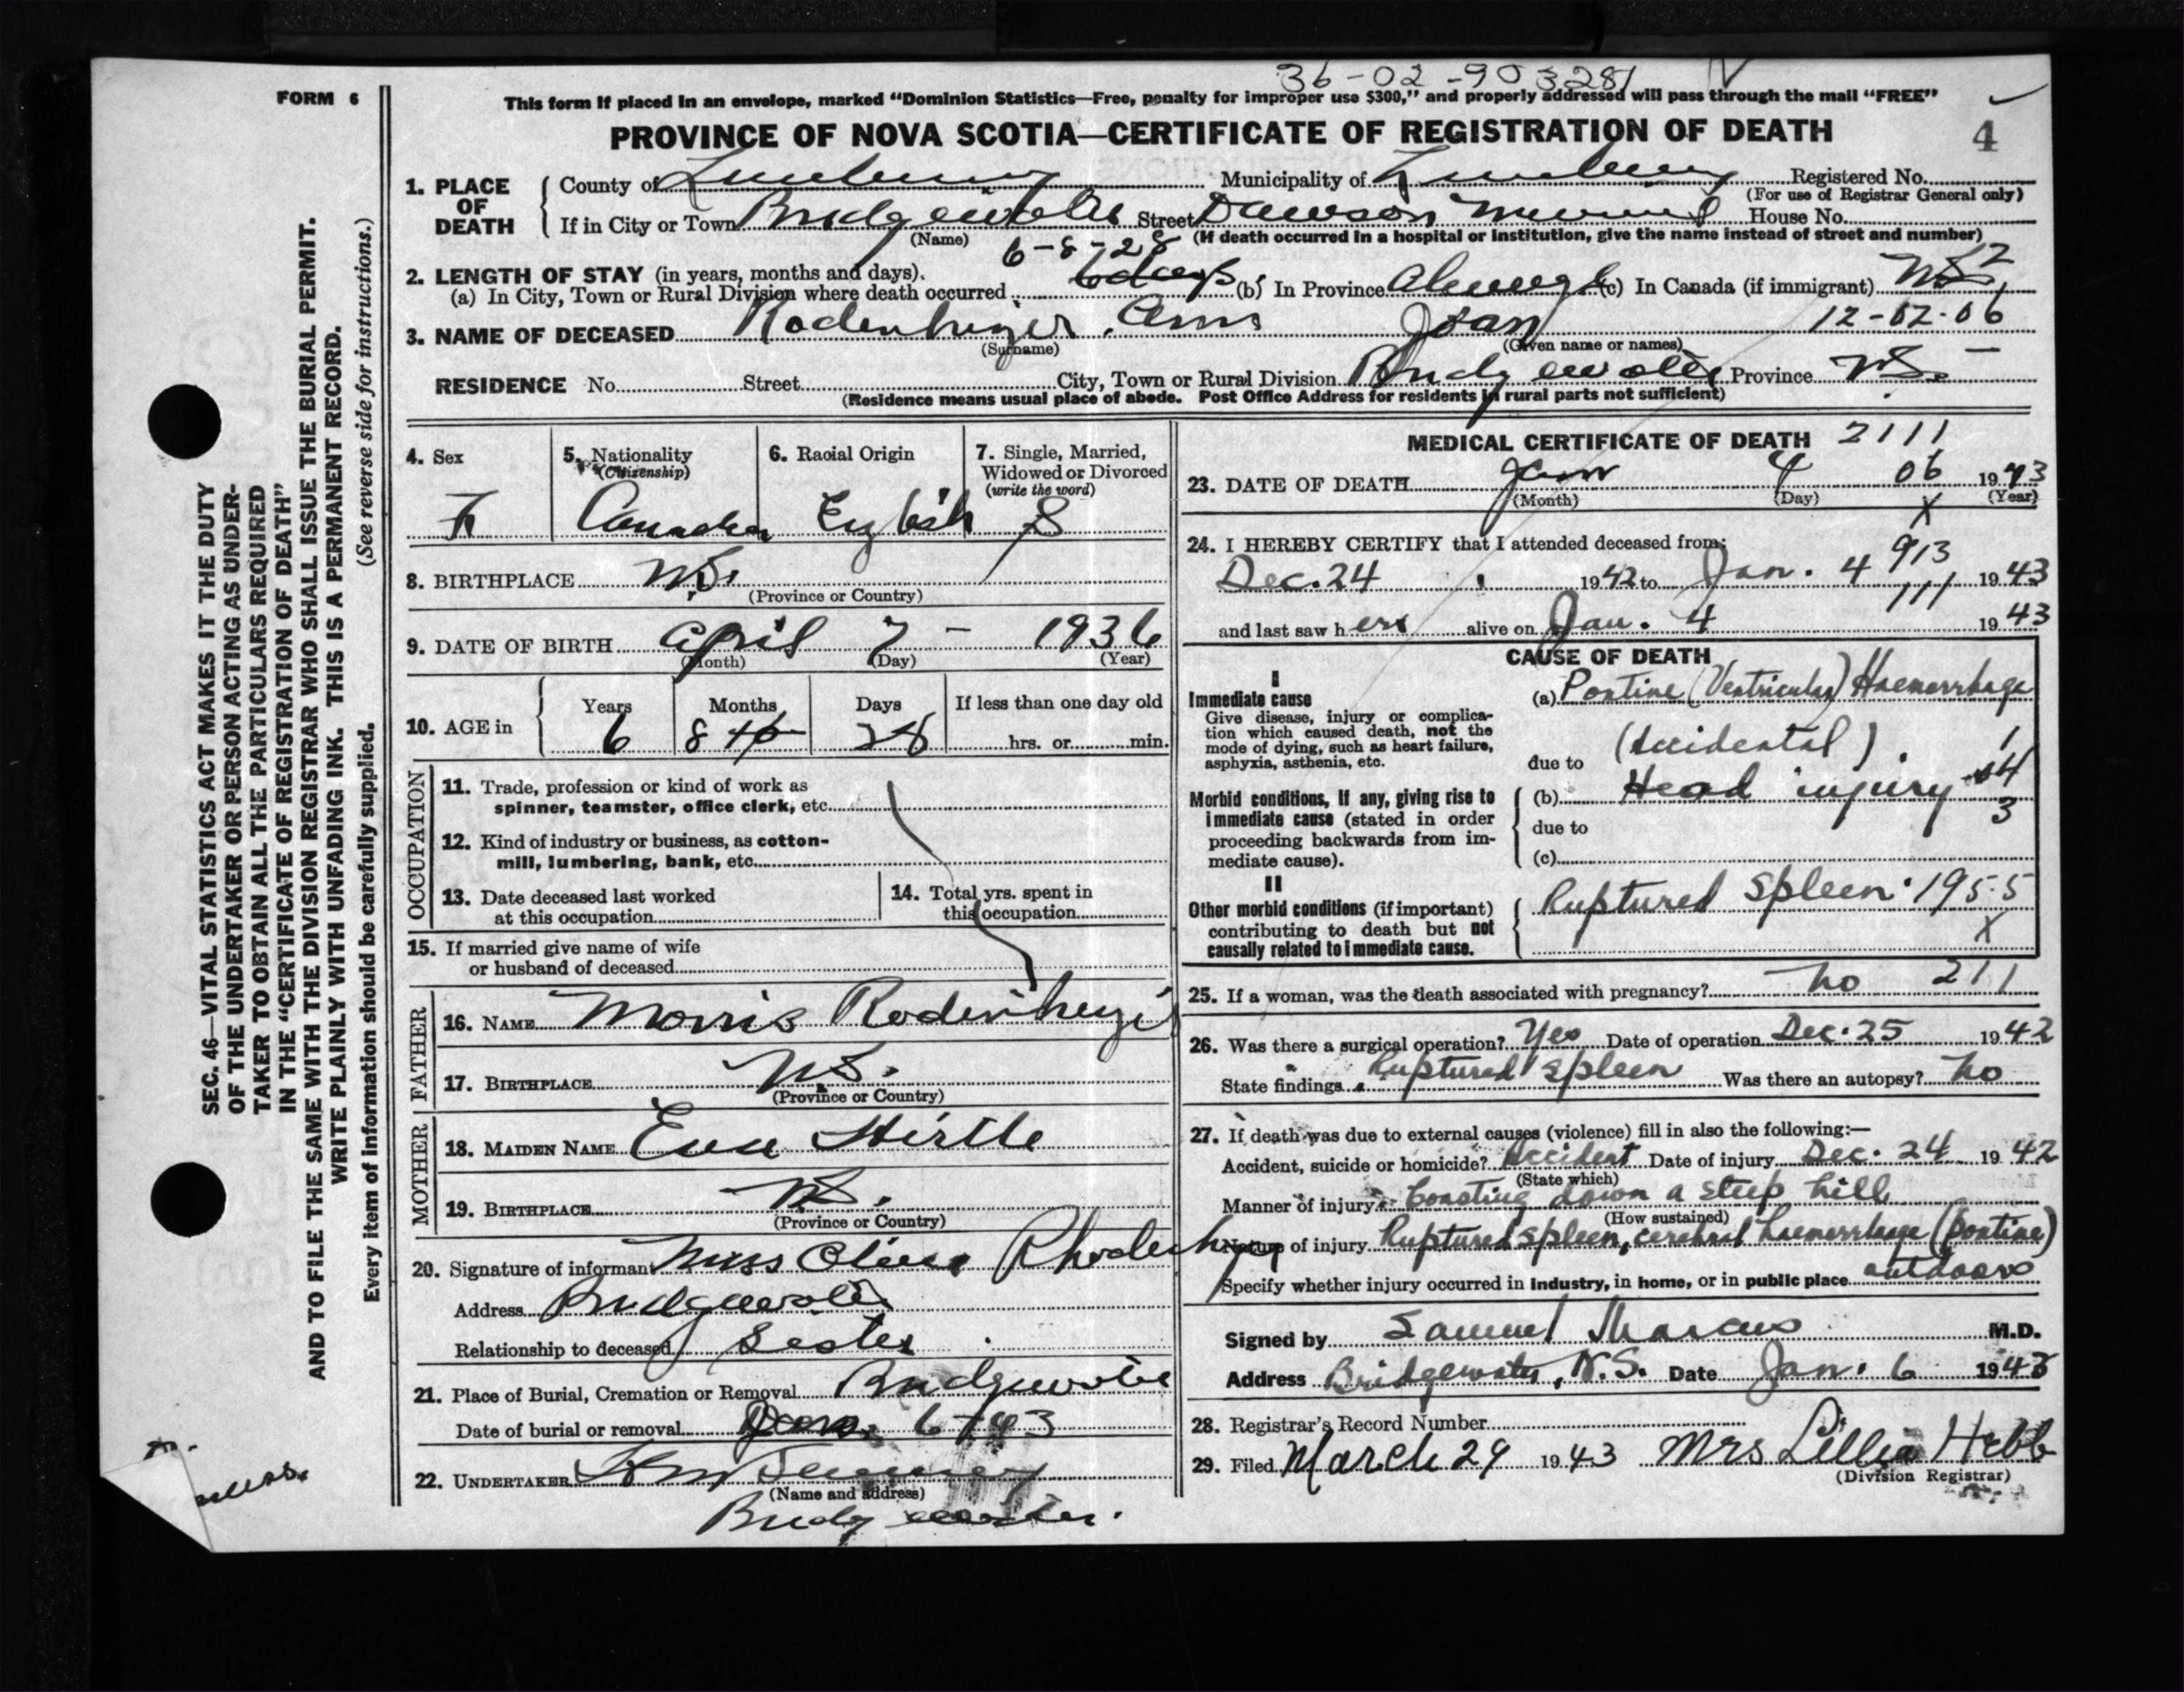 36-02-903281
FORM 6
This form if placed in an envelope, marked "Dominion Statistics—Free, penalty for improper use $300," and properly addressed will pass through the mail "FREE"
PROVINCE OF NOVA SCOTIA—CERTIFICATE OF REGISTRATION OF DEATH
4
1. PLACE OF DEATH
County of Lunenburg Municipality of Lunenburg Registered No.
(For use of Registrar General only)
If in City or Town Bridgewater Street Dawson Memorial House No.
(Name) (If death occurred in a hospital or institution, give the name instead of street and number)
6-8-28
2. LENGTH OF STAY (in years, months and days).
(a) In City, Town or Rural Division where death occurred 6 days (b) In Province Always (c) In Canada (if immigrant) NS
3. NAME OF DECEASED Rodenhizer, Ann Joan 12-02-06
(Surname) (Given name or names)
RESIDENCE No. Street City, Town or Rural Division Bridgewater Province N.S.
(Residence means usual place of abode. Post Office Address for residents in rural parts not sufficient)
4. Sex
F
5. Nationality
(Citizenship)
Canadian
6. Racial Origin
English
7. Single, Married,
Widowed or Divorced
(write the word)
S
8. BIRTHPLACE N.S.
(Province or Country)
9. DATE OF BIRTH April 7 - 1936
(Month) (Day) (Year)
10. AGE in
Years Months Days If less than one day old
6 8 28 hrs. or min.
OCCUPATION
11. Trade, profession or kind of work as
spinner, teamster, office clerk, etc.
12. Kind of industry or business, as cotton-
mill, lumbering, bank, etc.
13. Date deceased last worked
at this occupation
14. Total yrs. spent in
this occupation
15. If married give name of wife
or husband of deceased
FATHER
16. NAME Morris Rodenhizer
17. BIRTHPLACE N.S.
(Province or Country)
MOTHER
18. MAIDEN NAME Eva Hirtle
19. BIRTHPLACE N.S.
(Province or Country)
20. Signature of informant Miss Rhodenhizer
Address Bridgewater
Relationship to deceased Sester
21. Place of Burial, Cremation or Removal Bridgewater
Date of burial or removal Jan. 6-43
22. UNDERTAKER
(Name and address)
Bridgewater.
MEDICAL CERTIFICATE OF DEATH 2111
23. DATE OF DEATH Jan 4 06 1943
(Month) (Day) (Year)
X
24. I HEREBY CERTIFY that I attended deceased from:
913
Dec. 24 1942 to Jan. 4 1943
111
and last saw her alive on Jan. 4 1943
CAUSE OF DEATH
I
Immediate cause
Give disease, injury or complica-
tion which caused death, not the
mode of dying, such as heart failure,
asphyxia, asthenia, etc.
(a) Pontine (Ventricular) Haemorrhage
(Accidental)
due to
Morbid conditions, if any, giving rise to
immediate cause (stated in order
proceeding backwards from im-
mediate cause).
(b) Head injury
due to
(c)
1
4
3
II
Other morbid conditions (if important)
contributing to death but not
causally related to immediate cause.
Ruptured Spleen 195.5
X
25. If a woman, was the death associated with pregnancy? no 211
26. Was there a surgical operation? Yes Date of operation Dec. 25 1942
State findings Ruptured Spleen Was there an autopsy? No
27. If death was due to external causes (violence) fill in also the following:—
Accident, suicide or homicide? Accident Date of injury Dec. 24 1942
(State which)
Manner of injury Coasting down a steep hill
(How sustained)
Nature of injury Ruptured spleen, cerebral haemorrhage (pontine)
Specify whether injury occurred in industry, in home, or in public place outdoors
Signed by Samuel Marcus M.D.
Address Bridgewater, N.S. Date Jan. 6 1943
28. Registrar's Record Number
29. Filed March 29 1943 Mrs Lillia Hebb
(Division Registrar)
SEC. 46—VITAL STATISTICS ACT MAKES IT THE DUTY
OF THE UNDERTAKER OR PERSON ACTING AS UNDER-
TAKER TO OBTAIN ALL THE PARTICULARS REQUIRED
IN THE "CERTIFICATE OF REGISTRATION OF DEATH"
AND TO FILE THE SAME WITH THE DIVISION REGISTRAR WHO SHALL ISSUE THE BURIAL PERMIT.
WRITE PLAINLY WITH UNFADING INK. THIS IS A PERMANENT RECORD.
Every item of information should be carefully supplied. (See reverse side for instructions.)